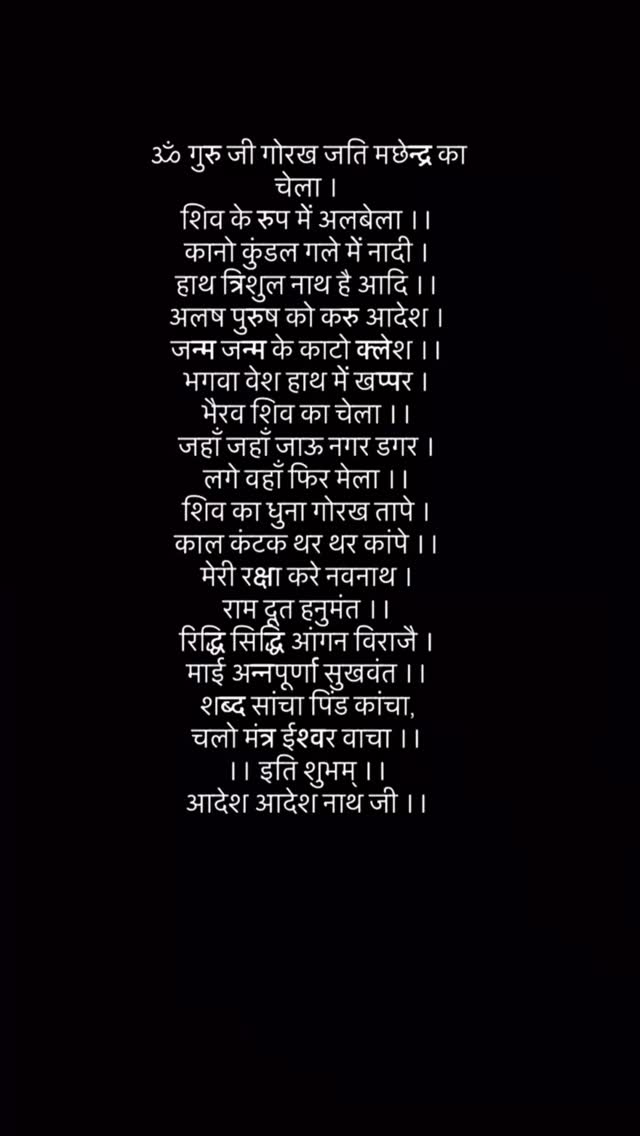 ॐ गुरु जी गोरख जति मछेन्द्र का
चेला ।
शिव के रुप में अलबेला ।।
कानो कुंडल गले में नादी ।
हाथ त्रिशुल नाथ है आदि ।।
अलष पुरुष को करु आदेश ।
जन्म जन्म के काटो क्लेश ।।
भगवा वेश हाथ में खप्पर ।
भैरव शिव का चेला ।।
जहाँ जहाँ जाऊ नगर डगर ।
लगे वहाँ फिर मेला ।।
शिव का धुना गोरख तापे ।
काल कंटक थर थर कांपे ।।
मेरी रक्षा करे नवनाथ ।
राम दूत हनुमंत ।।
रिद्धि सिद्धि आंगन विराजै ।
माई अन्नपूर्णा सुखवंत ।।
शब्द सांचा पिंड कांचा,
चलो मंत्र ईश्वर वाचा ।।
।। इति शुभम् ।।
आदेश आदेश नाथ जी ।।